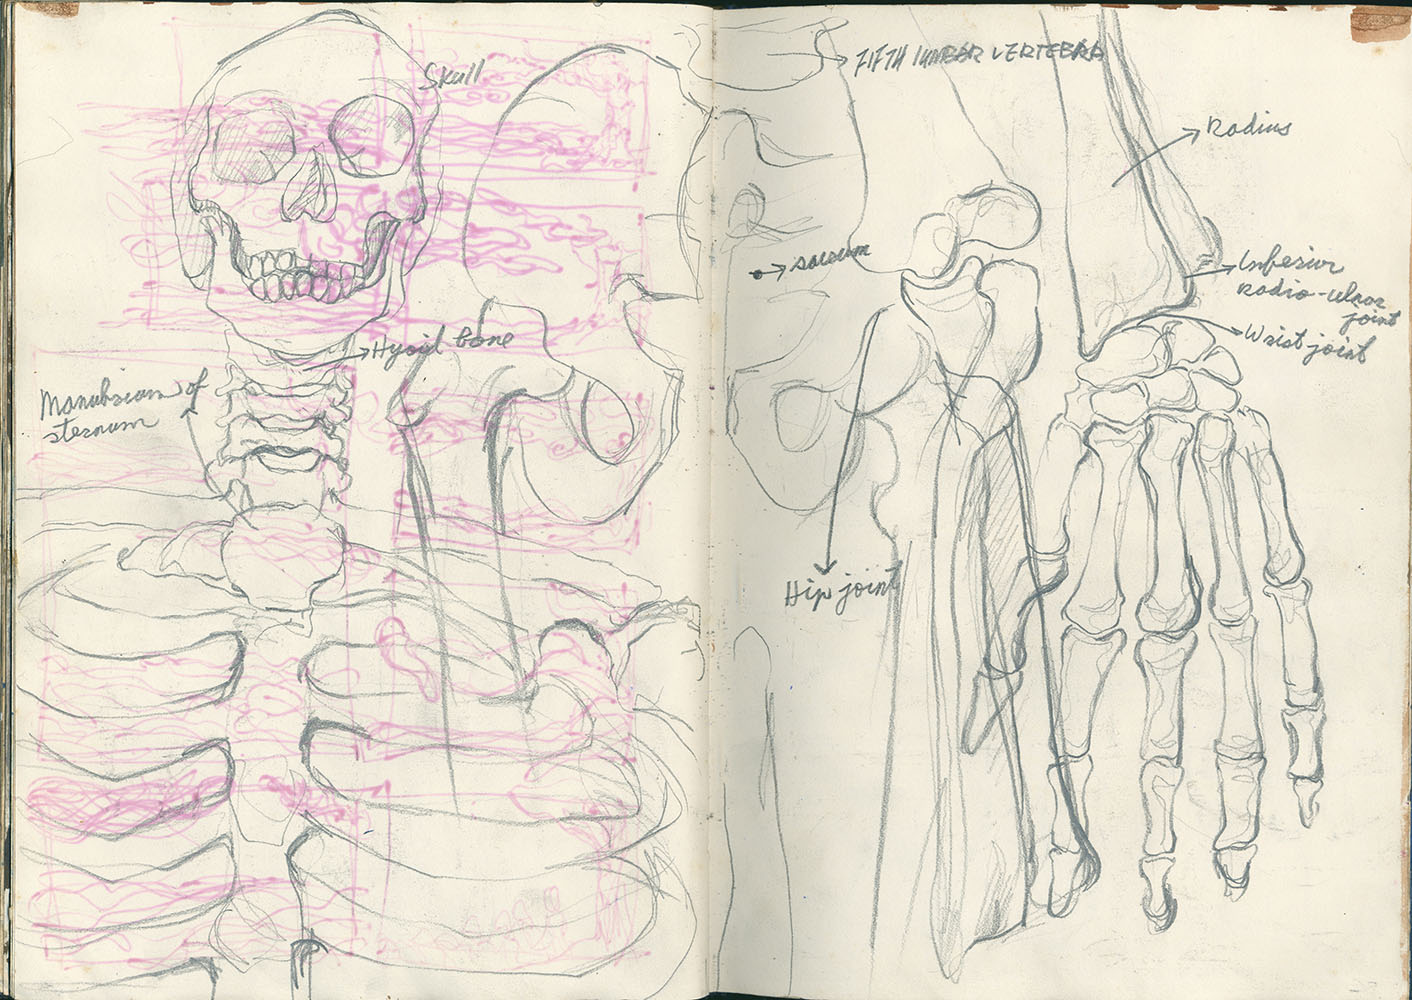 Skull
Hyoid bone
Manubrium of
sternum
FIFTH LUMBAR VERTEBRA
Radius
sacrum
Inferior
radio-ulnar
joint
Wrist joint
Hip joint